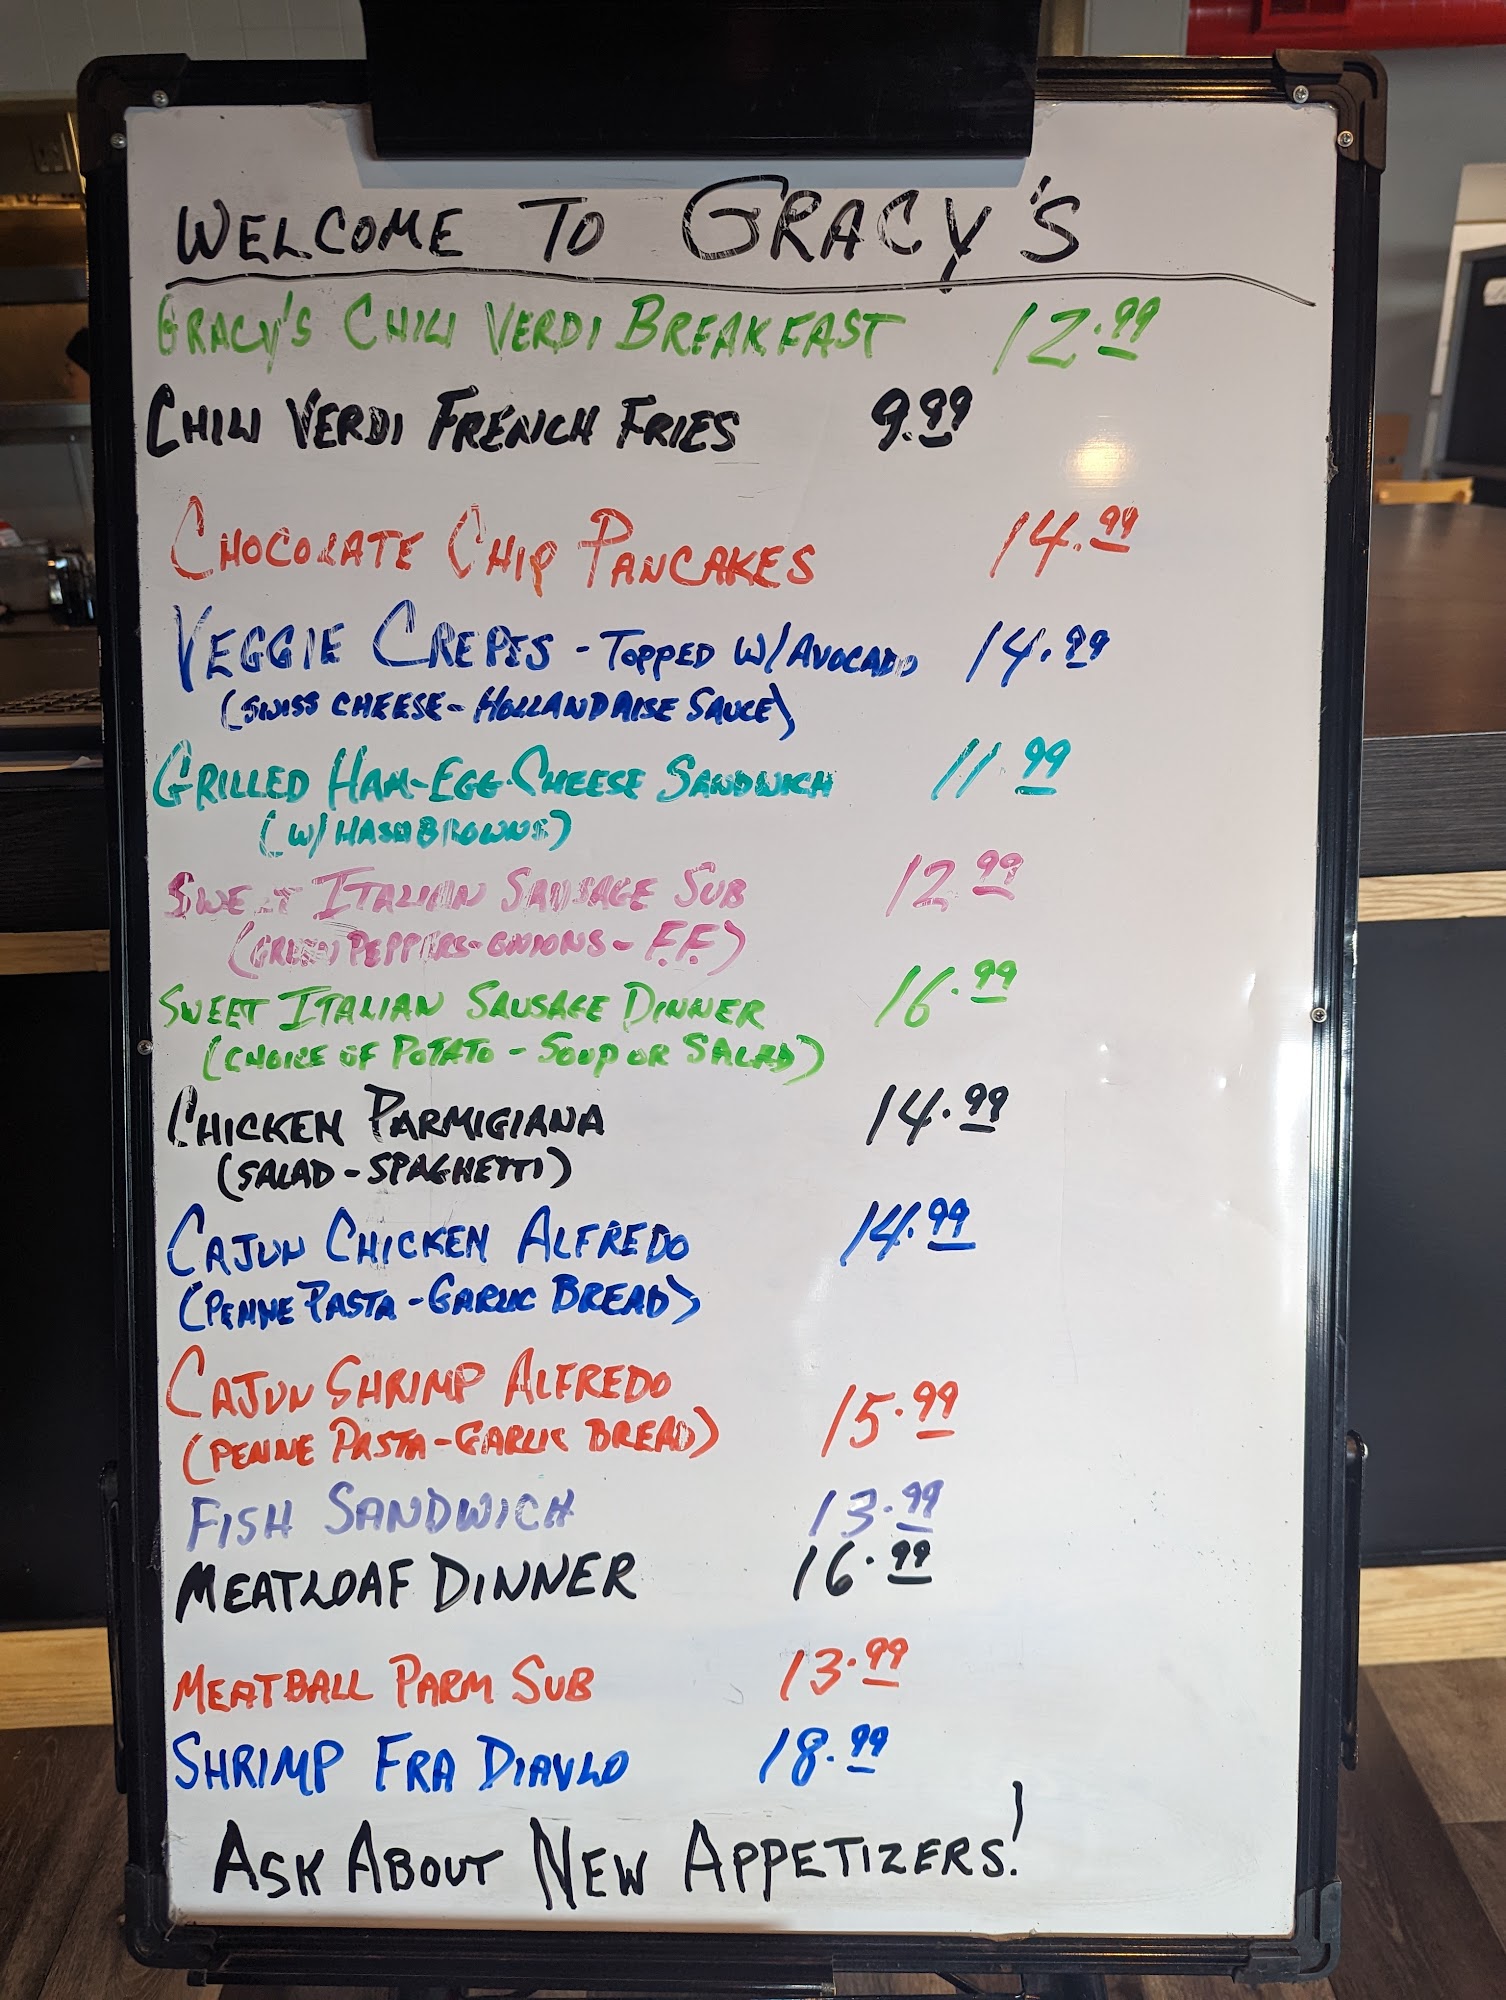 WELCOME TO GRACY'S
GRACY'S CHILI VERDI BREAKFAST 12.99
CHILI VERDI FRENCH FRIES 9.99
CHOCOLATE CHIP PANCAKES 14.99
VEGGIE CREPES - TOPPED W/ AVOCADO 14.99
(SWISS CHEESE - HOLLANDAISE SAUCE)
GRILLED HAM-EGG-CHEESE SANDWICH 11.99
(W/ HASHBROWNS)
SWEET ITALIAN SAUSAGE SUB 12.99
(GREEN PEPPERS - ONIONS - F.F.)
SWEET ITALIAN SAUSAGE DINNER 16.99
(CHOICE OF POTATO - SOUP OR SALAD)
CHICKEN PARMIGIANA 14.99
(SALAD - SPAGHETTI)
CAJUN CHICKEN ALFREDO 14.99
(PENNE PASTA - GARLIC BREAD)
CAJUN SHRIMP ALFREDO 15.99
(PENNE PASTA - GARLIC BREAD)
FISH SANDWICH 13.99
MEATLOAF DINNER 16.99
MEATBALL PARM SUB 13.99
SHRIMP FRA DIAVLO 18.99
ASK ABOUT NEW APPETIZERS!